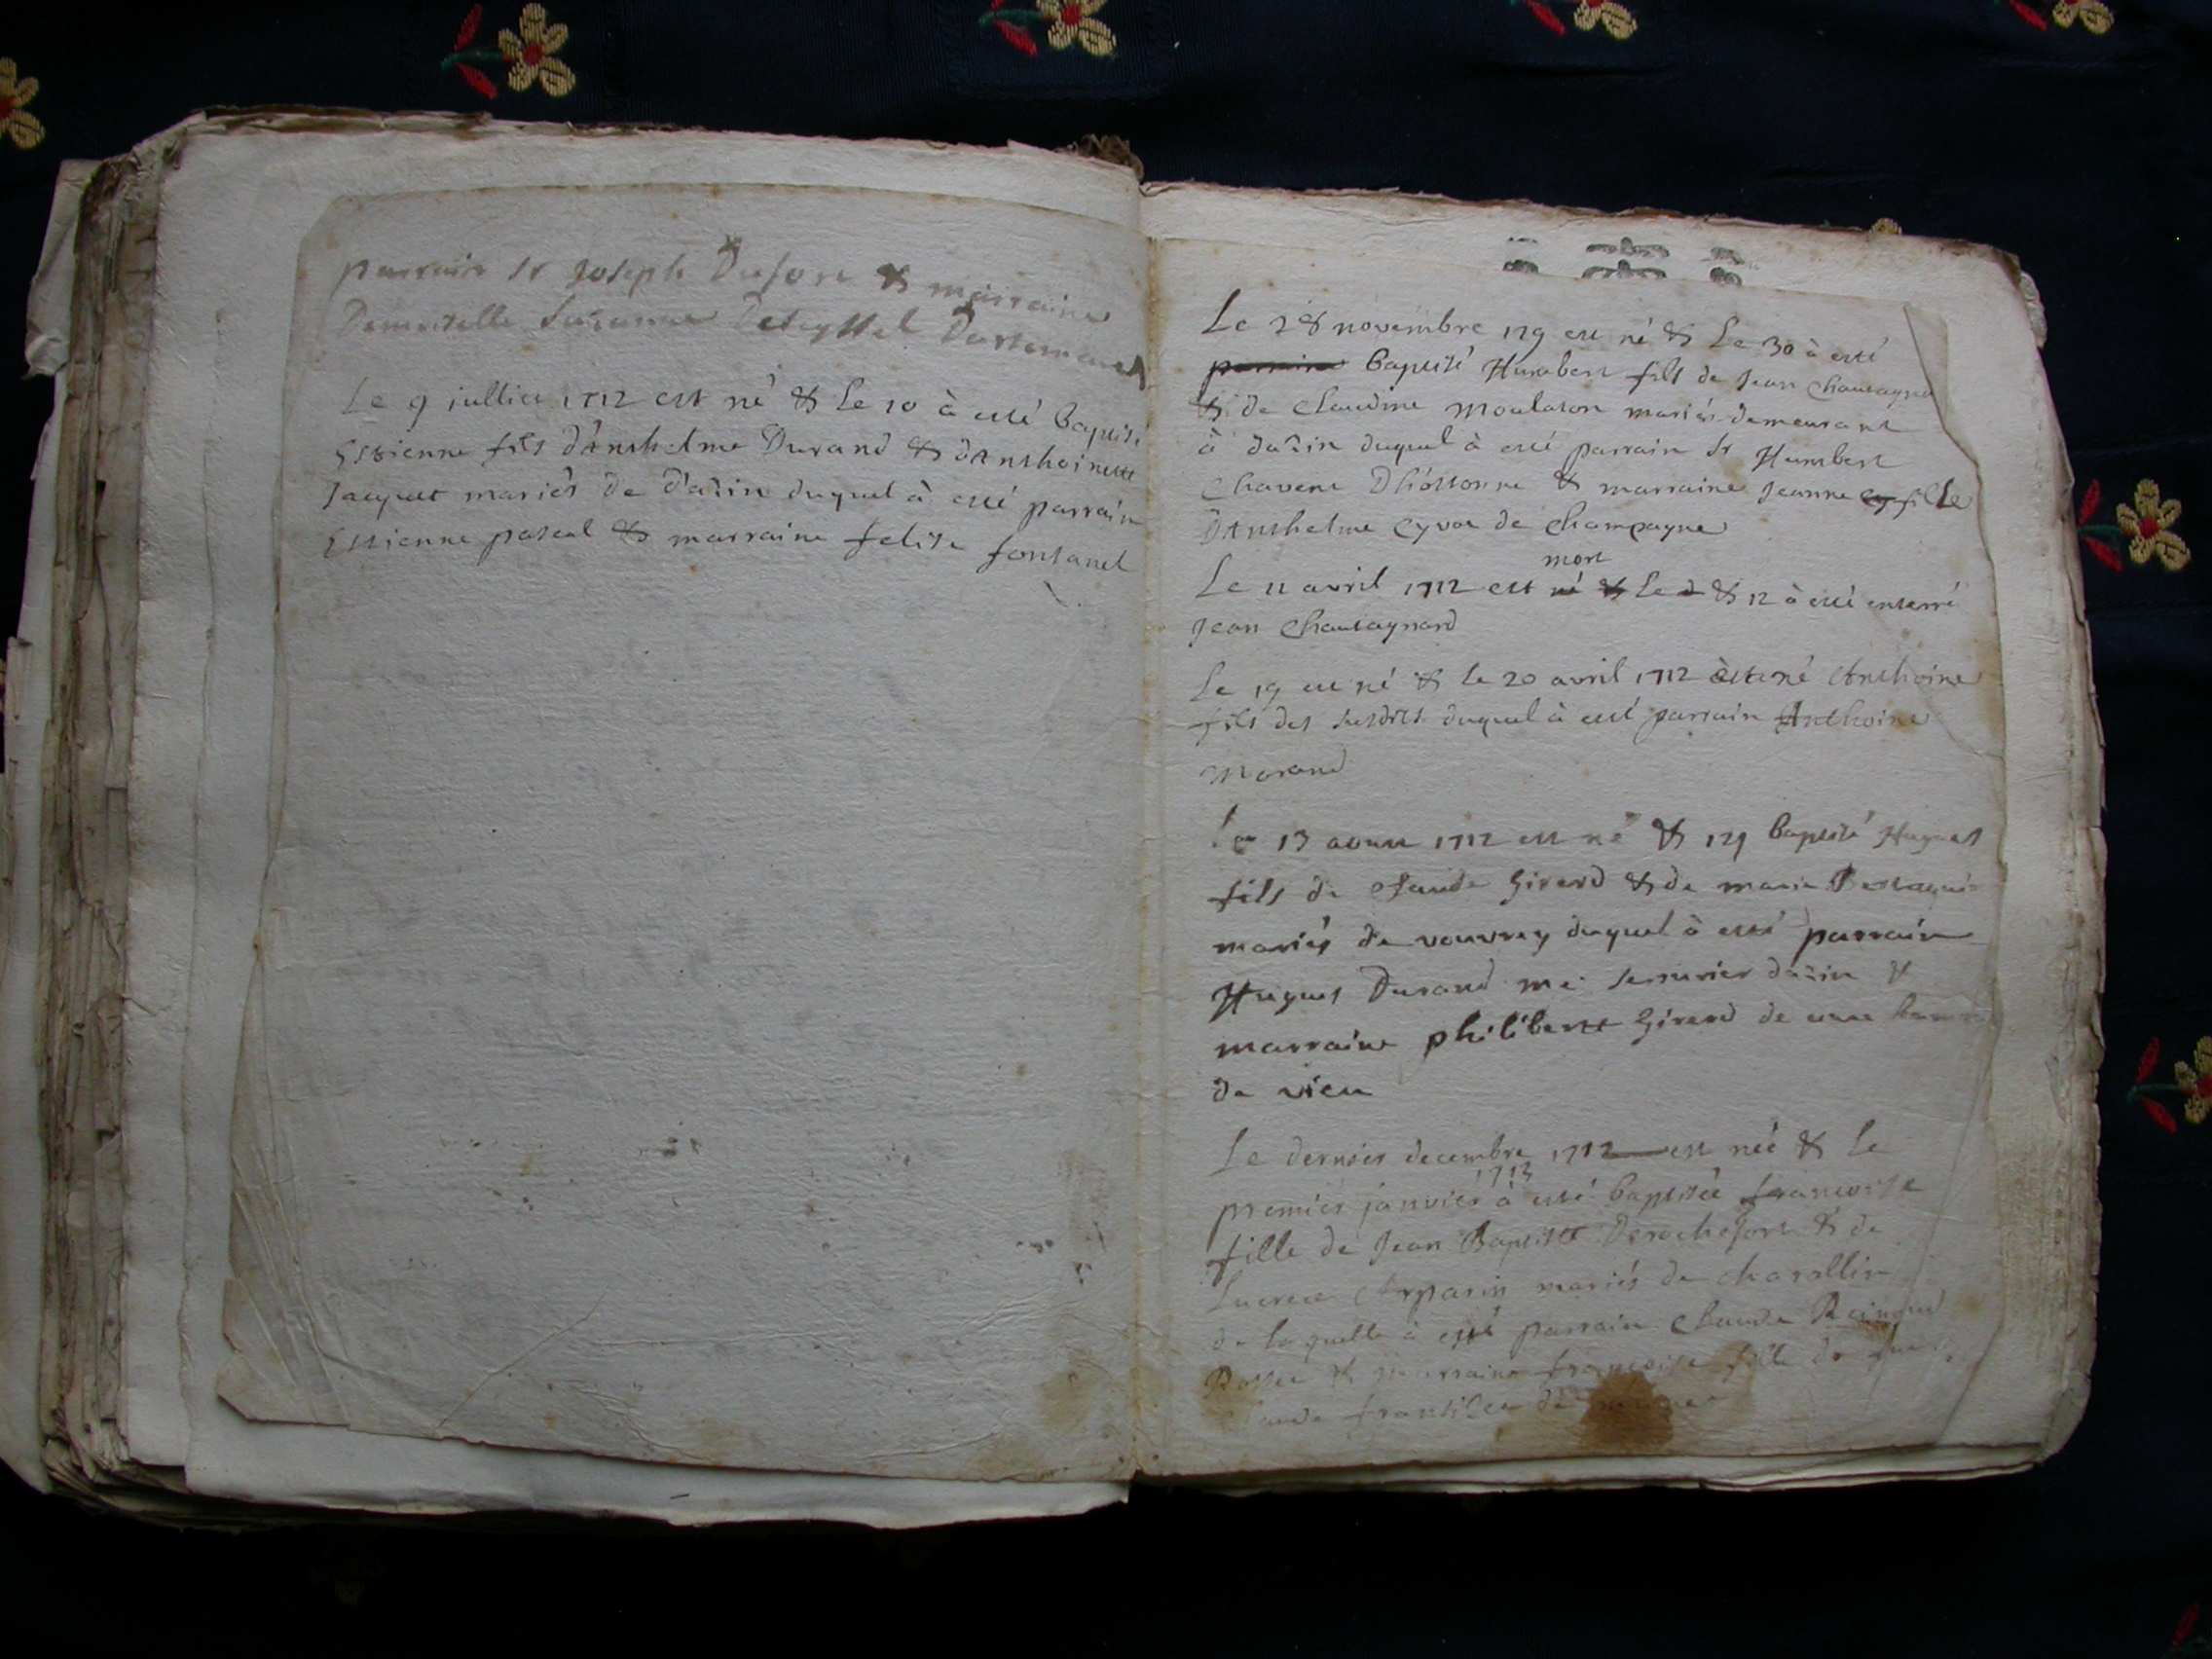 parrain Sr Joseph Dufore & marraine
Demoiselle Suzanne Deseyssel
Le 9 jullies 1712 est né & le 10 à esté Baptisé
Estienne fils d'Anthelme Durand & d'Anthoinette
Jacquet mariés de d'azin duquel à esté parrain
Estienne pascal & marraine felise fontanel
Le 28 novembre 179 est né & Le 30 à esté
parraine Baptisé Humbert fils de Jean Chautagna
& de Claudine Moulason mariés demeurant
à dazin duquel à esté parrain Sr Humbert
Chavent Dhostonne & marraine Jeanne fille
D'Anthelme Cyvoe de Champagne
mort
Le 11 avril 1712 est né & Le & 12 à esté enterré
Jean Chautagnard
Le 19 est né & le 20 avril 1712 Anthoine
fils des susdits duquel à esté parrain Anthoine
Morand
Le 13 aoust 1712 est né & Baptisé Hugues
fils de Claude Girard & de marie
mariés de vouvray duquel à esté parrain
Hugues Durand me serrurier dazin &
marraine philiberte Girard de
de vieu
Le dernier decembre 1712 est née & Le
1713
premier janvier à esté baptisée francoise
fille de Jean Baptiste Derochefort & de
Lucrece Arparin mariés de charallin
de laquelle à esté parrain Claude
& marraine francoise fille de
Claude